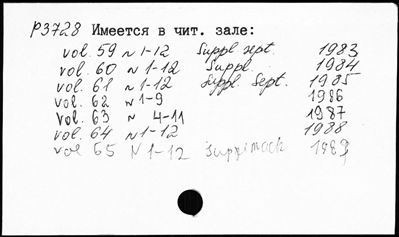 P3728 Имеется в чит. зале:
vol. 59 N 1-12 Suppl sept. 1983
vol. 60 N 1-12 Suppl 1984
vol. 61 N 1-12 Suppl. Sept. 1985
vol. 62 N 1-9 1986
vol. 63 N 4-11 1987
vol. 64 N 1-12 1988
vol 65 N 1-12 1989